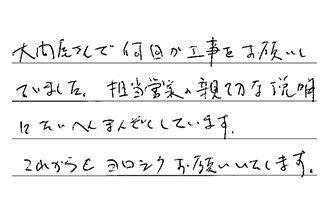 大内屋さんで何回か工事をお願いし
ていました。担当営業の親切な説明
にたいへんまんぞくしています。
これからもヨロシクお願いいたします。